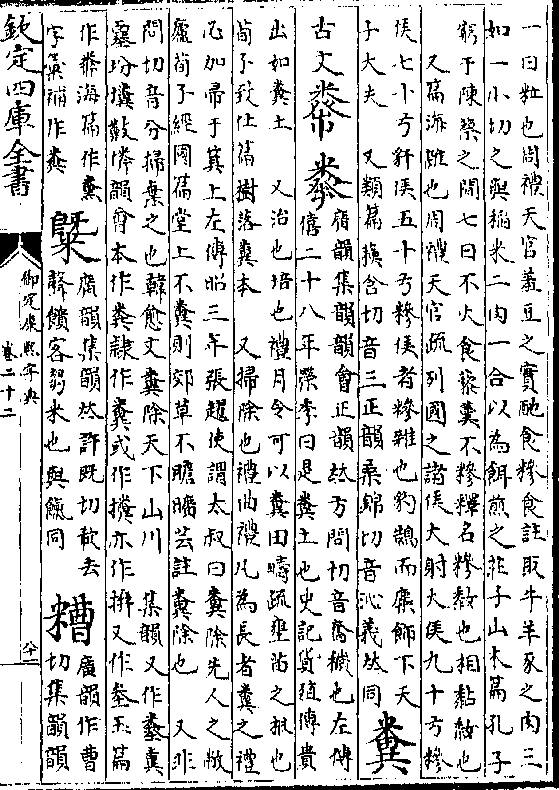 一曰粒也周禮天官羞豆之實酏食糝食註取牛羊豕之肉三
如一小切之與稻米二肉一合以為餌煎之莊子山木篇孔子
窮于陳蔡之間七日不火食藜羹不糝釋名糝敎也相黏敎也
又篇海雜也周禮天官疏列國之諸侯大射大侯九十弓糝
侯七十弓豻侯五十弓糝侯者糝雜也豹鵠而麋飾下天
子大夫 又類篇蘓含切音三正韻桑錦切音沁義𠀤同 糞
古文 廣韻集韻韻會正韻𠀤方問切音奮穢也左傳
僖二十八年榮季曰是糞土也史記貨殖傳貴
出如糞土 又治也培也禮月令可以糞田疇疏壅苗之根也
荀子致仕篇樹落糞本 又掃除也禮曲禮凡為長者糞之禮
必加帚于箕上左傳昭三年張趯使謂太叔曰糞除先人之敝
廬荀子經國篇堂上不糞則郊草不瞻曠芸註糞除也 又非
問切音分掃棄之也韓愈文糞除天下山川 集韻又作
韻會本作糞隸作糞或作攩亦作拚又作坌玉篇
作 海篇作
字彙補作
䊠 廣韻集韻𠀤許旣切欷去
聲饋客芻米也與餼同
糟 廣韻作曹
切集韻韻
欽定四庫全書
御定康熙字典
卷二十二